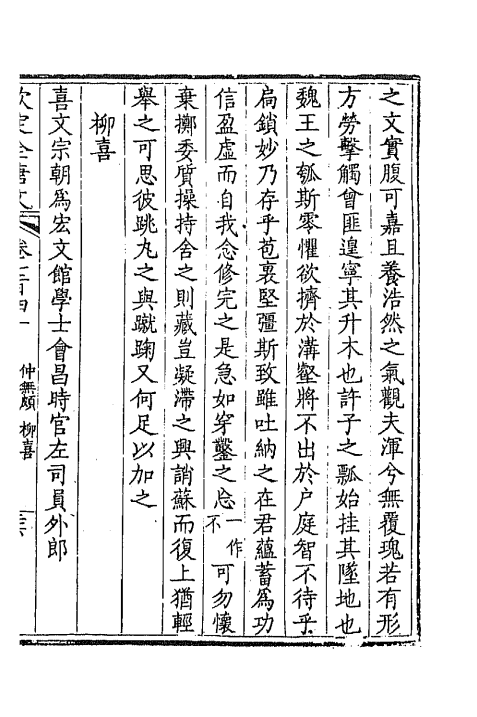 之文實腹可嘉且養浩然之氣觀夫渾兮無覆瑰若有形
方勞擊觸曾匪遑寧其升木也許子之瓢始挂其墜地也
魏王之瓠斯零懼欲擠於溝壑將不出於户庭智不待乎
扄鎖妙乃存乎苞裹堅彊斯致雖吐納之在君蘊蓄為功
信盈虛而自我念修完之是急如穿鑿之忌一作不可勿懷
棄擲委質操持舍之則藏豈凝滯之興誚蘇而復上猶輕
舉之可思彼跳丸之與蹴踘又何足以加之
柳喜
喜文宗朝為宏文館學士會昌時官左司員外郎
欽定全唐文 卷七百四十 仲無頗 柳喜